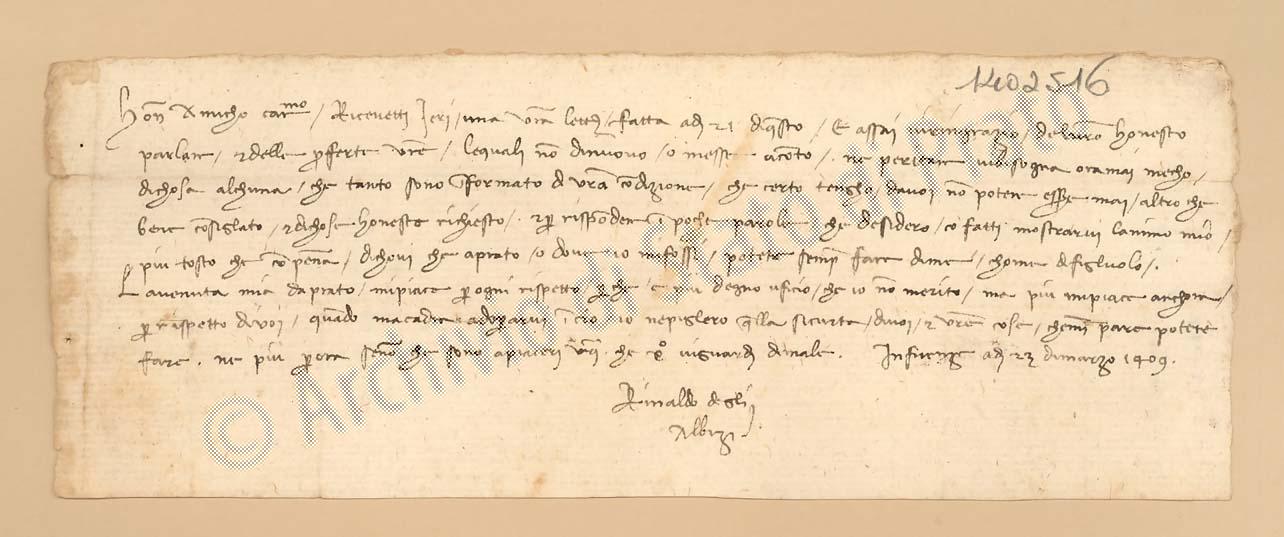 1402516
Hon Amicho carmo / Ricevetti Ieri / una vra lettera / fatta adi 21 di questo / E assai vi ringrazio / del vro honesto
parlare / et delle proferte vre / le quali non di nuovo / o messe a conto / ne peritare vi bisogna oramai mecho /
di chosa alchuna / che tanto sono informato di vra condizione / che certo tengho da voi non potere essere mai / altro che
bene consiglato / et di chose honeste richiesto / et per rispondere in poche parole che desidero / co fatti mostrarvi lanimo mio /
piu tosto che con penna / dichovi che a prato / o dove io mi fossi / potete sempre fare di me / chome di figluolo /.
La venuta mia da prato / mi piace per ogni rispetto perche e piu degno uficio / che io non merito / ma piu mi piace anchora /
per rispetto di voi / quando macadra adoperarvi io ne piglero quella sicurta / di voi / et vre cose / che mi pare potete
fare . ne piu per ora senon che sono a piaceri vri che xpo vi guardi di male . In firenze adi 23 di marzo 1409 .
Rinaldo degli
Albizi
© Archivio di Stato di Prato